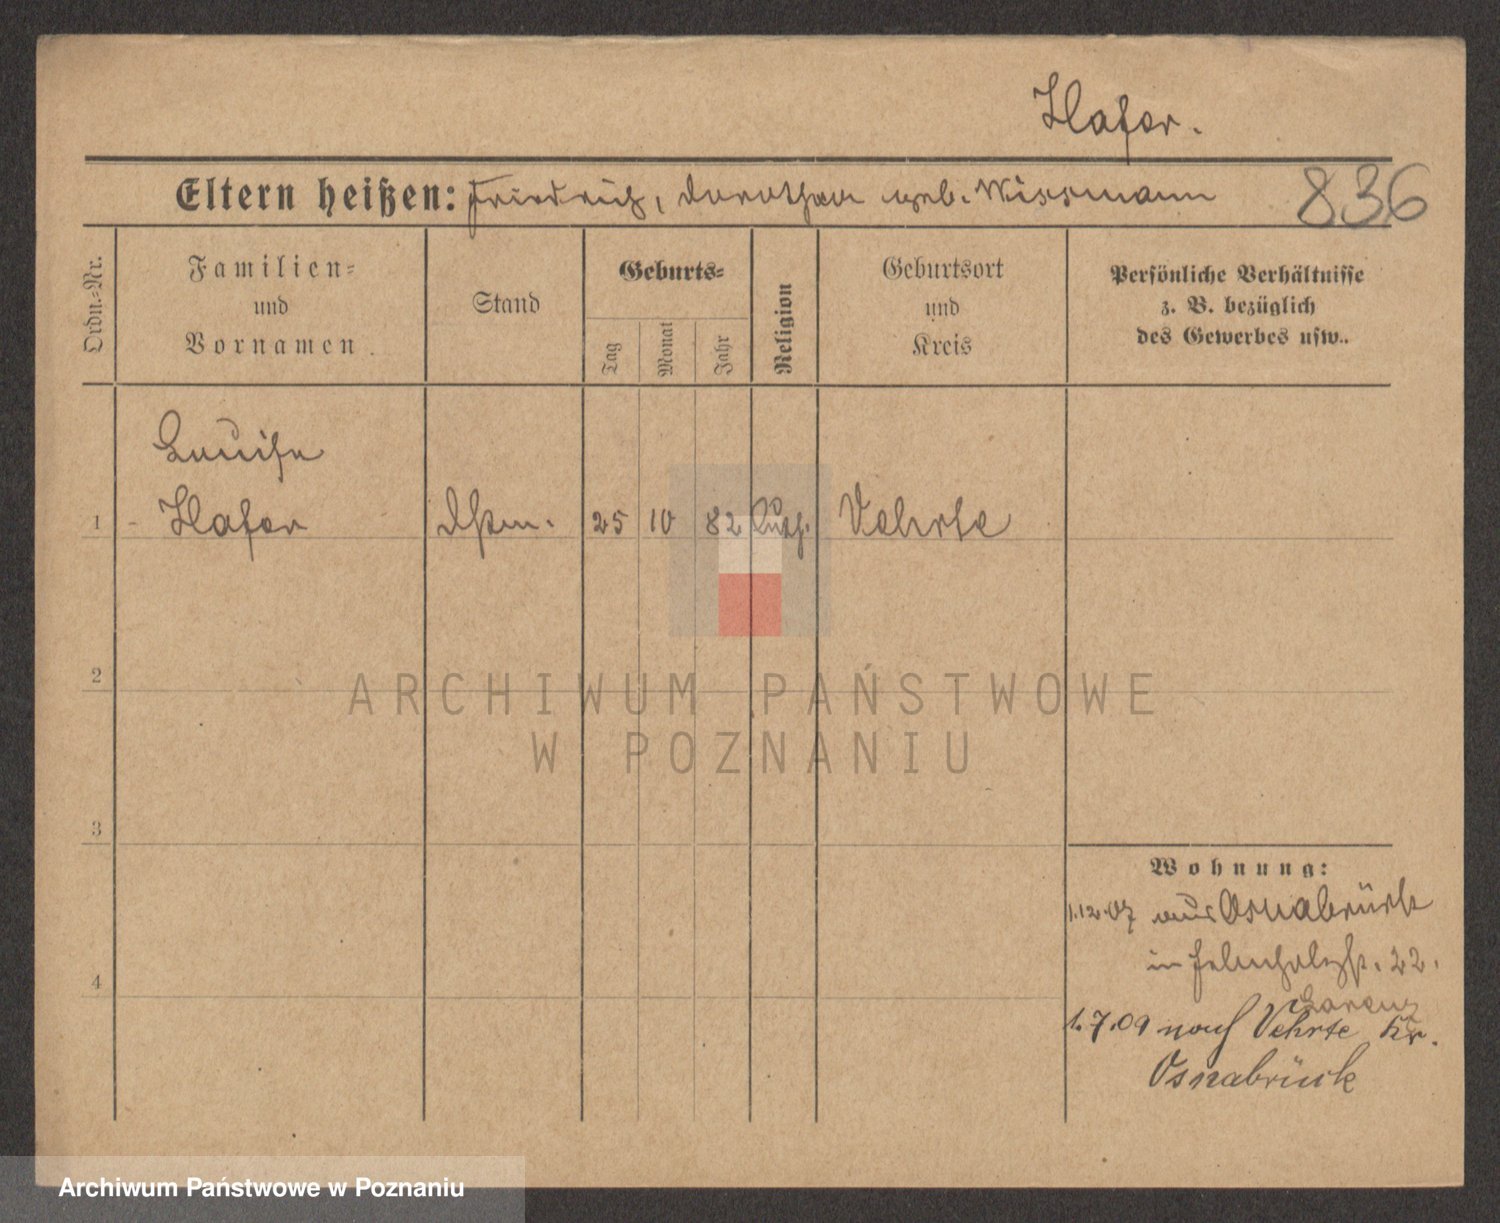 Hafer.
Eltern heißen: Friedrich, Dorothea geb. Wissmann 836
Ordn.-Nr.
Familien-
und
Vornamen.
Stand
Geburts-
Tag
Monat
Jahr
Religion
Geburtsort
und
Kreis
Persönliche Verhältnisse
z. B. bezüglich
des Gewerbes usw..
Louise
1 - Hafer 25 10 82 luth. Vehrte
2
3
4
Wohnung:
1.12.07 aus Osnabrück
in 22.
Lorenz
1.7.09 nach Vehrte Kr.
Osnabrück
ARCHIWUM PAŃSTWOWE
W POZNANIU
Archiwum Państwowe w Poznaniu